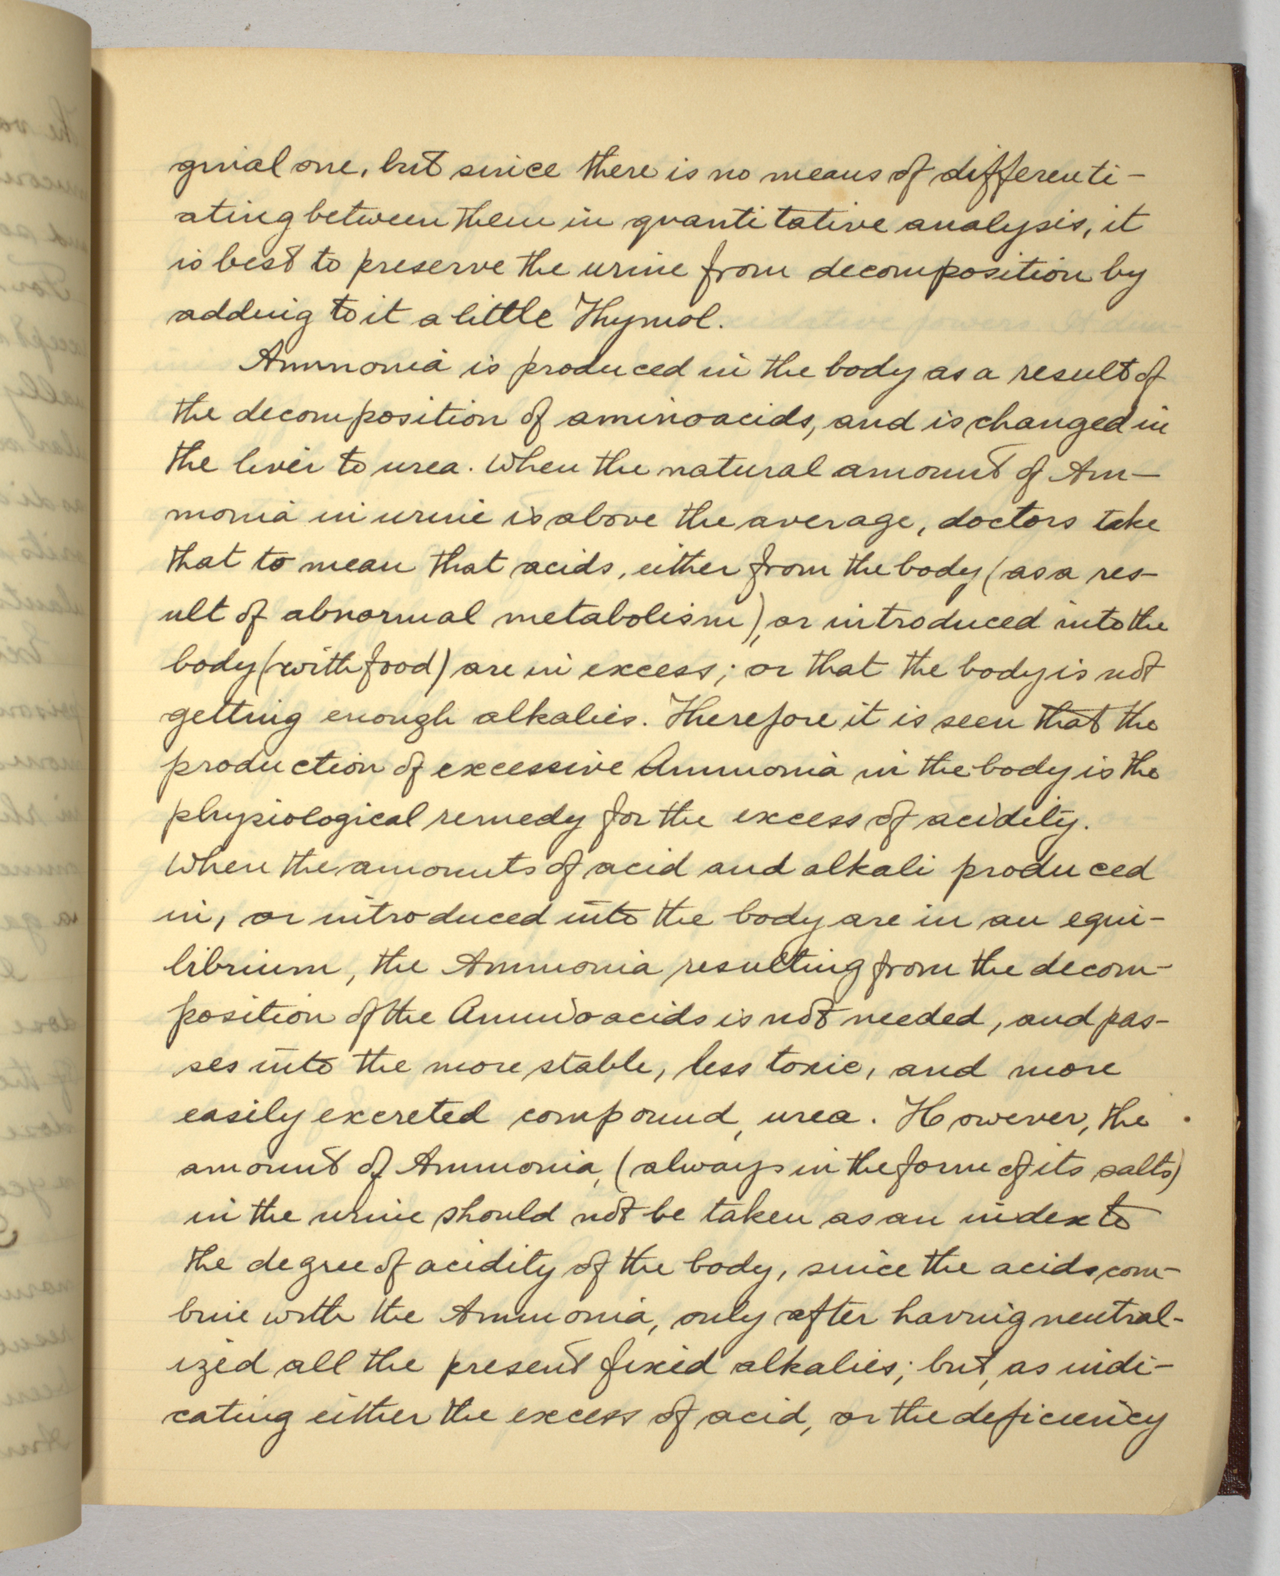 ginal one, but since there is no means of differenti-
ating between them in quantitative analysis, it
is best to preserve the urine from decomposition by
adding to it a little Thymol.
Ammonia is produced in the body as a result of
the decomposition of aminoacids, and is changed in
the liver to urea. When the natural amount of Am-
monia in urine is above the average, doctors take
that to mean that acids, either from the body (as a res-
ult of abnormal metabolism), or introduced into the
body (with food) are in excess; or that the body is not
getting enough alkalies. Therefore it is seen that the
production of excessive Ammonia in the body is the
physiological remedy for the excess of acidity.
When the amounts of acid and alkali produced
in, or introduced into the body are in an equi-
librium, the Ammonia resulting from the decom-
position of the Aminoacids is not needed, and pas-
ses into the more stable, less toxic, and more
easily excreted compound, urea. However, the
amount of Ammonia, (always in the form of its salts)
in the urine should not be taken as an index to
the degree of acidity of the body, since the acids com-
bine with the Ammonia, only after having neutral-
ized all the present fixed alkalies; but, as indi-
cating either the excess of acid, or the deficiency